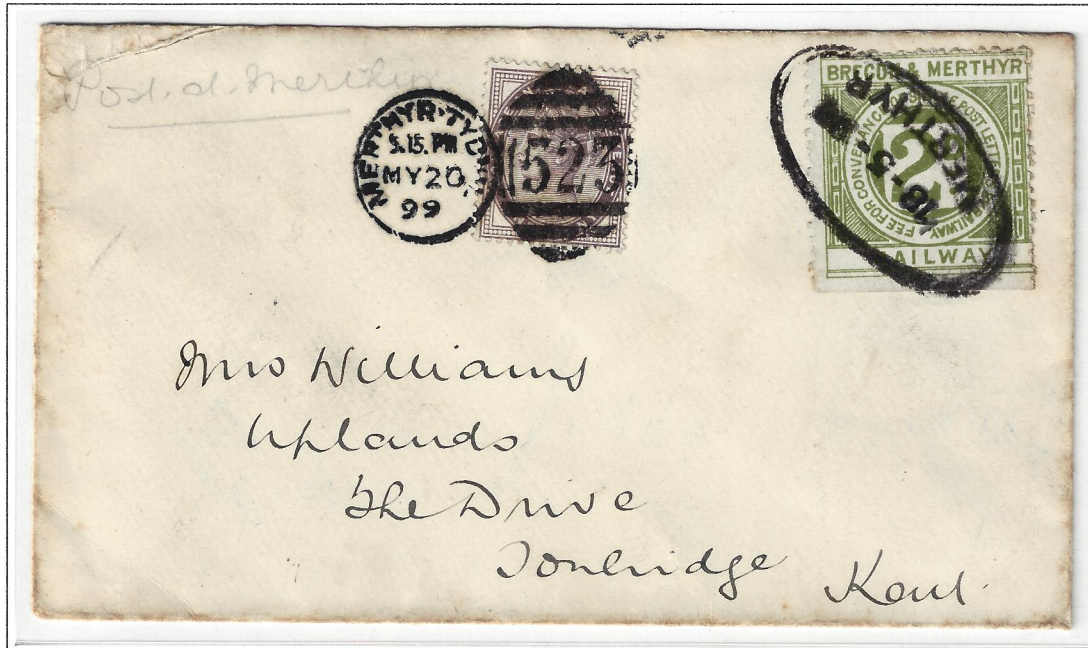 Post. d. Merthyr
MERTHYR·TYDFIL
5.15.PM
MY20
99
523
BRECON & MERTHYR
RAILWAY
FEE FOR CONVEYANCE OF SINGLE POST LETTERS BY RAILWAY
2
MERTHYR
18·5
Mrs Williams
Uplands
The Drive
Tonbridge
Kent.